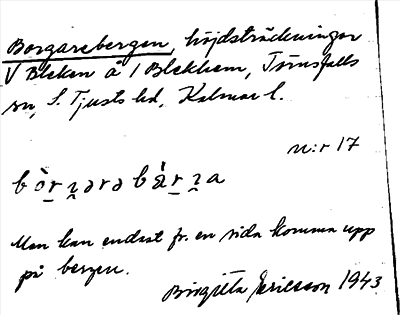 Borgarebergen, höjdsträckningar
V Bleken å 1 Blekhem, Törnsfalls
sn, S. Tjusts hd, Kalmar l.
n:r 17
Man kan endast fr. en sida komma upp
på bergen.
Birgitta Ericsson 1943